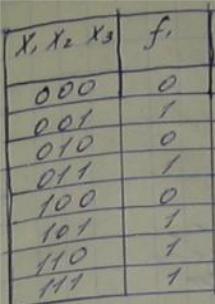 X₁ X₂ X₃ f₁
000 0
001 1
010 0
011 1
100 0
101 1
110 1
111 1